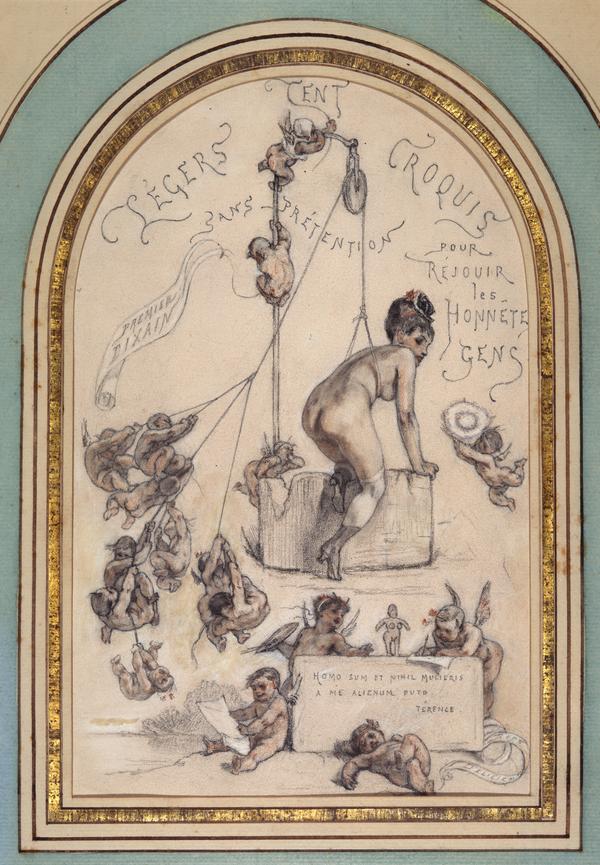 CENT
LÉGERS CROQUIS
SANS PRÉTENTION
POUR
REJOUIR
les
HONNÊTE
GENS
PREMIER
DIXAIN
HOMO SUM ET NIHIL MULIERIS
A ME ALIENUM PUTO
TÉRENCE